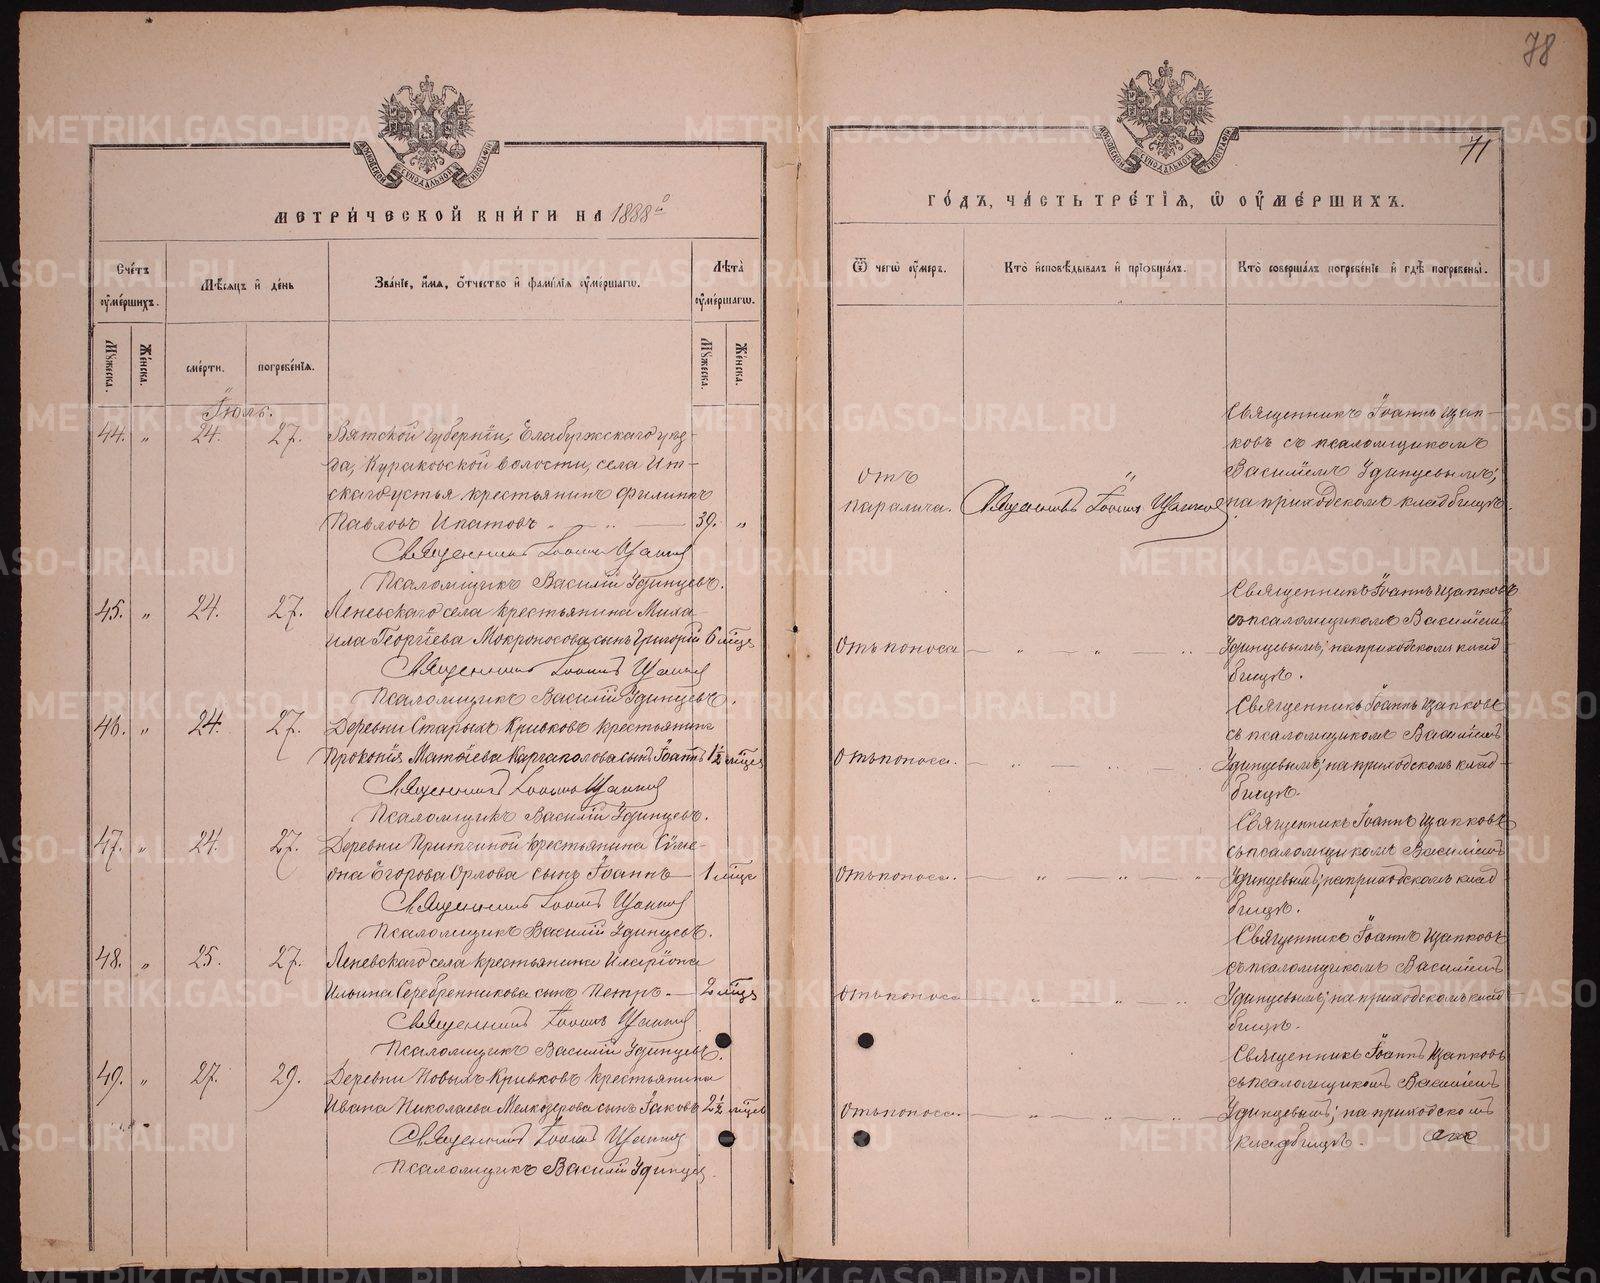 78
71
МЕТРИ́ЧЕСКОЙ КНИ́ГИ НА 1888й
Сче́тъ ᲂу҆ме́ршихъ.
Мѣ́сяцъ и҆ де́нь
Зва́нїе, и҆́мя, ѻ҆́тчество и҆ фами́лїя ᲂу҆ме́ршагѡ.
Лѣ́та ᲂу҆ме́ршагѡ.
Мꙋ́жеска.
Же́нска.
сме́рти.
погребе́нїя.
Мꙋ́жеска.
Же́нска.
Іюль.
44. „ 24. 27. Вятской губерніи, Елабужскаго уѣз-
да, Кураковской волости, села Ит-
скагоустья крестьянинъ Филиппъ
Павловъ Ипатовъ 39. „
Священникъ Іоаннъ Щапковъ
Псаломщикъ Василій Удинцевъ.
45. „ 24. 27. Леневскаго села крестьянина Миха-
ила Георгіева Мокроносова сынъ Григорій 6 мѣсц
Священникъ Іоаннъ Щапковъ
Псаломщикъ Василій Удинцевъ.
46. „ 24. 27. Деревни Старыхъ Кривковъ крестьянина
Прокопія Матѳіева Каргаполова сынъ Іоаннъ 1½ мѣсцъ
Священникъ Іоаннъ Щапковъ
Псаломщикъ Василій Удинцевъ.
47. „ 24. 27. Деревни Притчиной крестьянина Симе-
она Егорова Орлова сынъ Іоаннъ 1 мѣсц
Священникъ Іоаннъ Щапковъ
Псаломщикъ Василій Удинцевъ.
48. „ 25. 27. Леневскаго села крестьянина Иларіона
Ильина Серебренникова сынъ Петръ. 2 мѣсц
Священникъ Іоаннъ Щапковъ
Псаломщикъ Василій Удинцевъ.
49. „ 27. 29. Деревни Новыхъ Кривковъ крестьянина
Ивана Николаева Мелкозерова сынъ Іаковъ 2½ мѣсцъ
Священникъ Іоаннъ Щапковъ
Псаломщикъ Василій Удинцевъ.
ГО́ДЪ, ЧА́СТЬ ТРЕ́ТЇЯ, Ѡ҆ ОУ҆МЕ́РШИХЪ.
Ѿ чегѡ̀ ᲂу҆́меръ.
Кто̀ и҆сповѣ́дывалъ и҆ прїѡбща́лъ.
Кто̀ соверша́лъ погребе́нїе и҆ гдѣ̀ погребены̀.
Священникъ Іоаннъ Щап-
ковъ съ псаломщикомъ
Василіемъ Удинцевымъ;
отъ
паралича. Священникъ Іоаннъ Щапковъ на приходскомъ кладбищѣ.
Священникъ Іоаннъ Щапковъ
съ псаломщикомъ Василіемъ
Отъ поноса Удинцевымъ; на приходскомъ клад
бищѣ.
Священникъ Іоаннъ Щапковъ
съ псаломщикомъ Василіемъ
Отъ поноса. Удинцевымъ; на приходскомъ клад-
бищѣ.
Священникъ Іоаннъ Щапковъ
съ псаломщикомъ Василіемъ
Отъ поноса. Удинцевымъ; на приходскомъ клад
бищѣ.
Священникъ Іоаннъ Щапковъ
съ псаломщикомъ Василіемъ
Отъ поноса Удинцевымъ; на приходскомъ клад
бищѣ.
Священникъ Іоаннъ Щапковъ
съ псаломщикомъ Василіемъ
Отъ поноса. Удинцевымъ; на приходскомъ
кладбищѣ.
METRIKI.GASO-URAL.RU